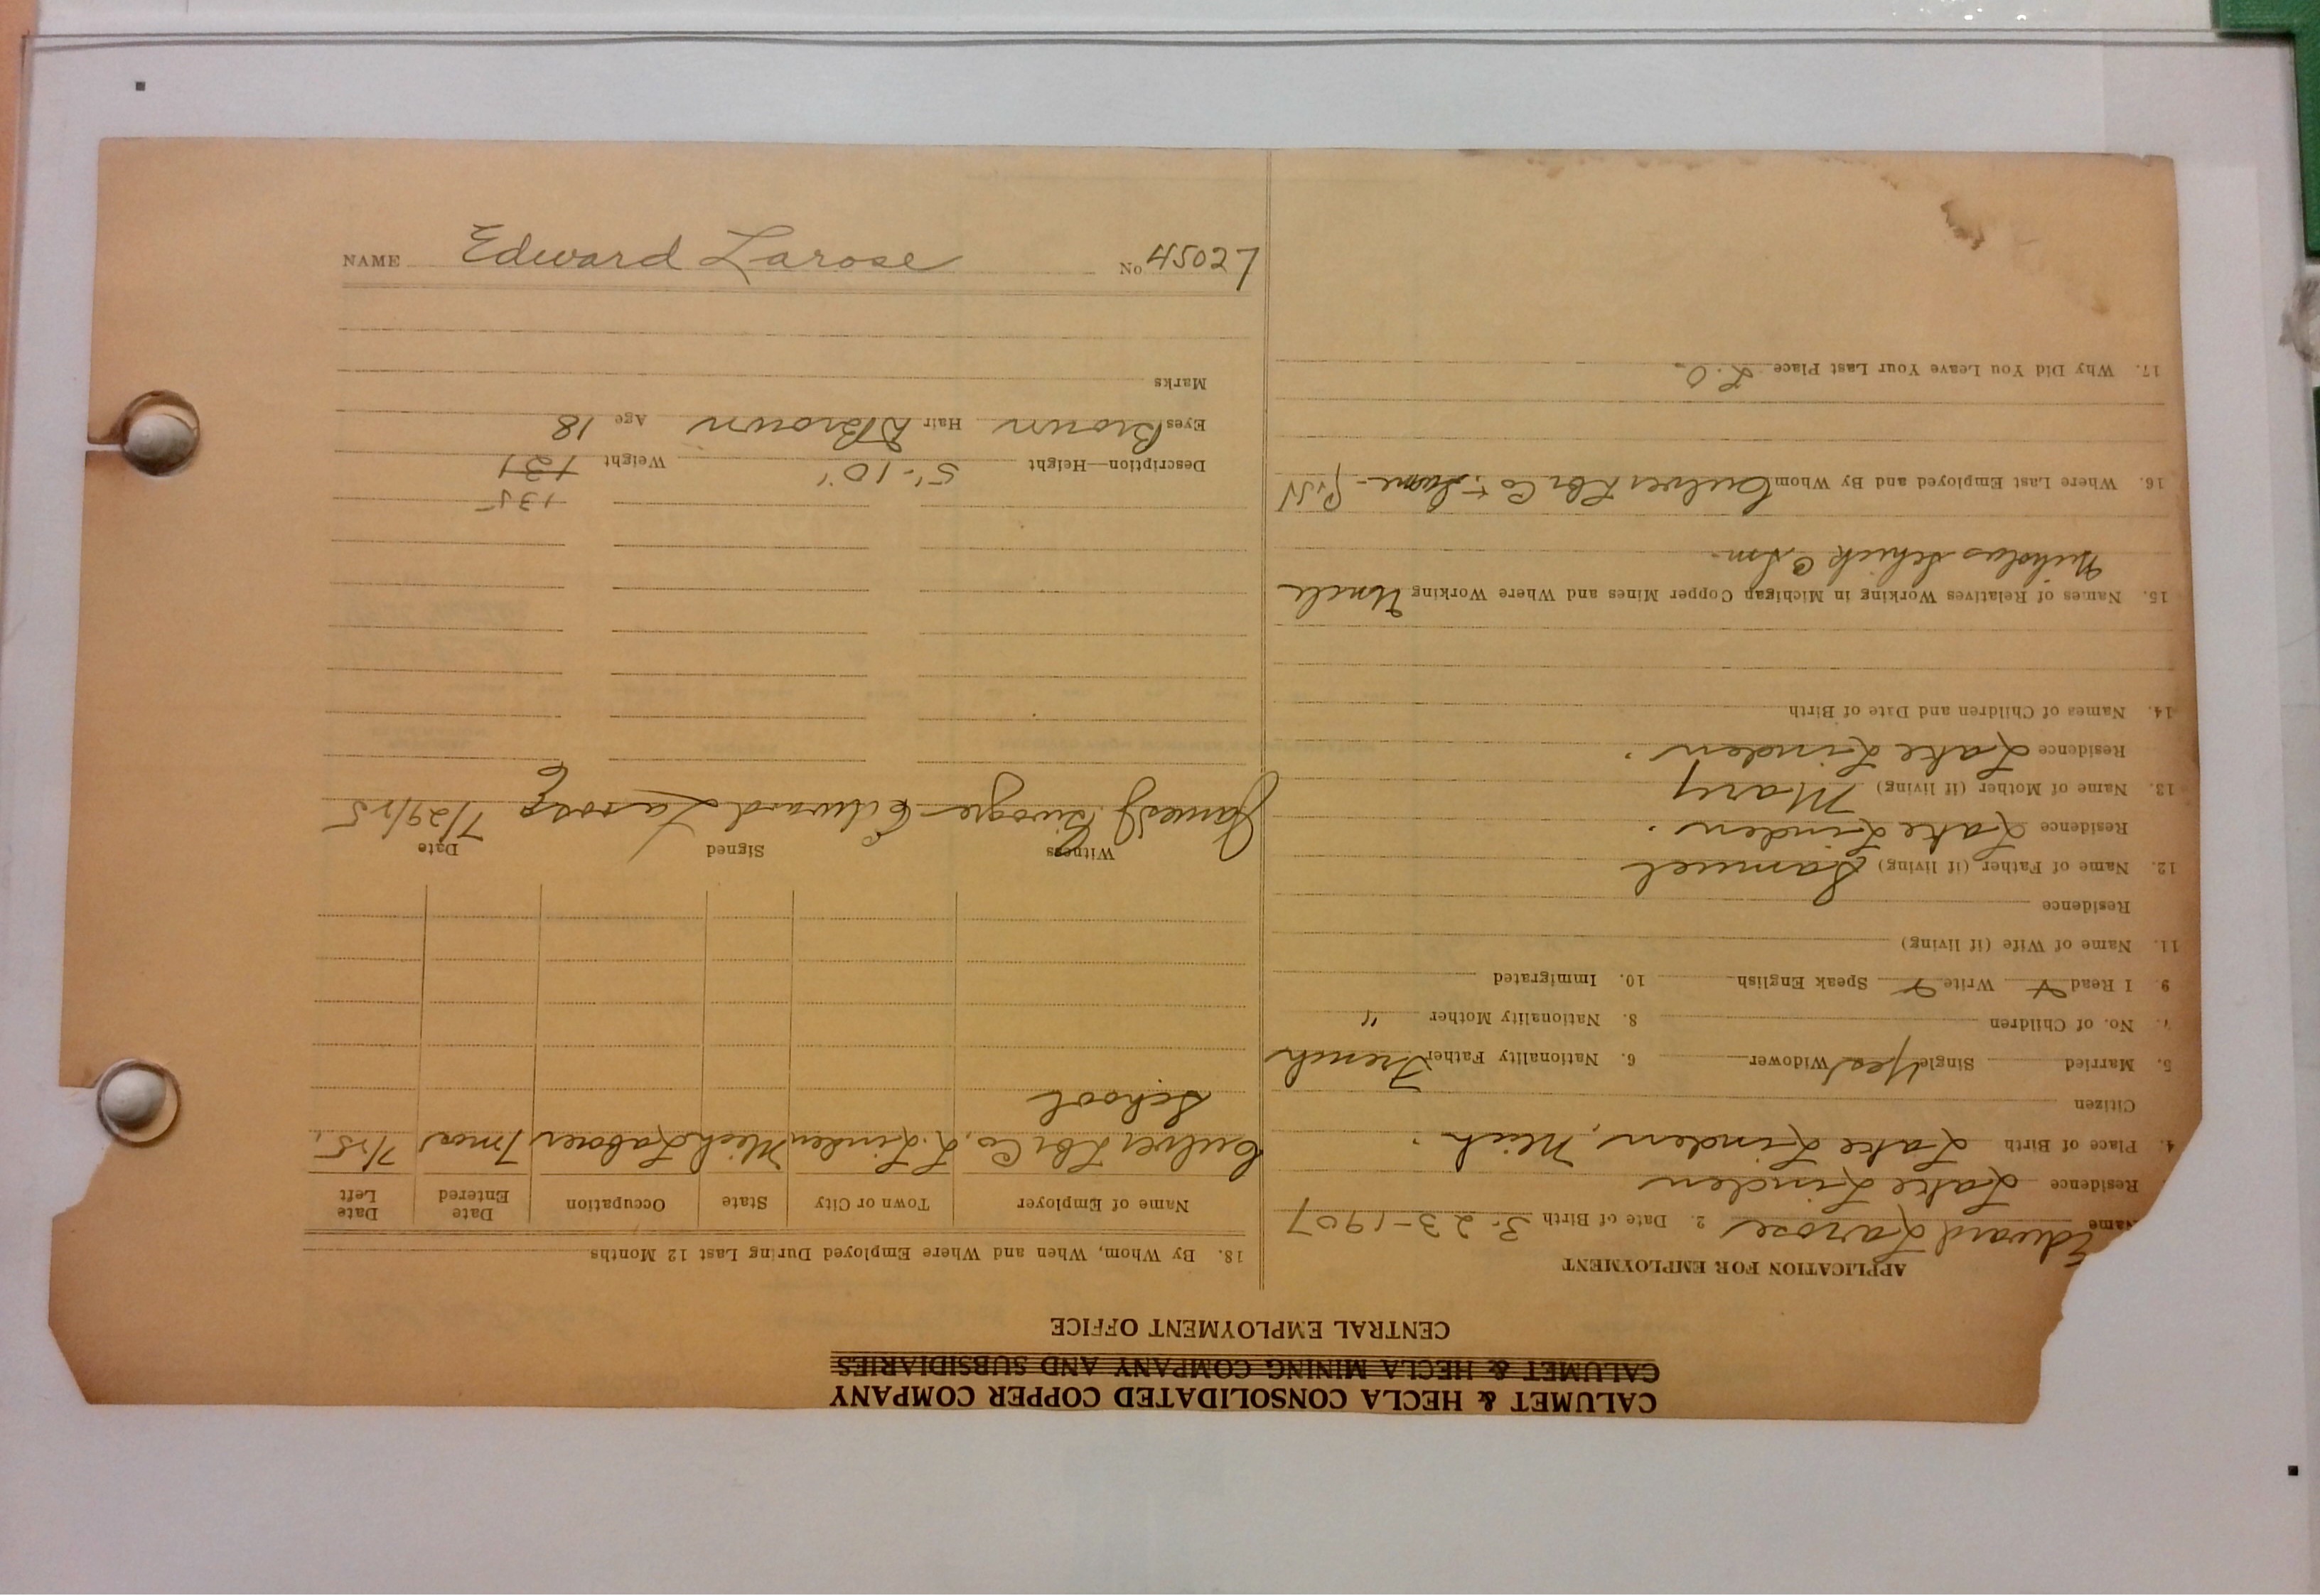 CALUMET & HECLA CONSOLIDATED COPPER COMPANY
CALUMET & HECLA MINING COMPANY AND SUBSIDIARIES
CENTRAL EMPLOYMENT OFFICE
APPLICATION FOR EMPLOYMENT
Name Edward Larose 2. Date of Birth 3-23-1907
Residence Lake Linden
4. Place of Birth Lake Linden, Mich.
Citizen
5. Married Single Yes Widower 6. Nationality Father French
7. No. of Children 8. Nationality Mother "
9. I Read Write Speak English 10. Immigrated
11. Name of Wife (if living)
Residence
12. Name of Father (if living) Samuel
Residence Lake Linden.
13. Name of Mother (if living) Mary
Residence Lake Linden.
14. Names of Children and Date of Birth
15. Names of Relatives Working in Michigan Copper Mines and Where Working Uncle
Nicholas Schick
16. Where Last Employed and By Whom Culver Lbr Co + Same
17. Why Did You Leave Your Last Place L.O.
18. By Whom, When and Where Employed During Last 12 Months
Name of Employer Town or City State Occupation Date Entered Date Left
Culver Lbr Co, L. Linden Mich Laborer 7 mos 7/25,
School
Witness Signed Date
James J. Edward Larose 7/29/25
135
Description—Height 5'-10" Weight 131
Eyes Brown Hair D Brown Age 18
Marks
NAME Edward Larose No 45027